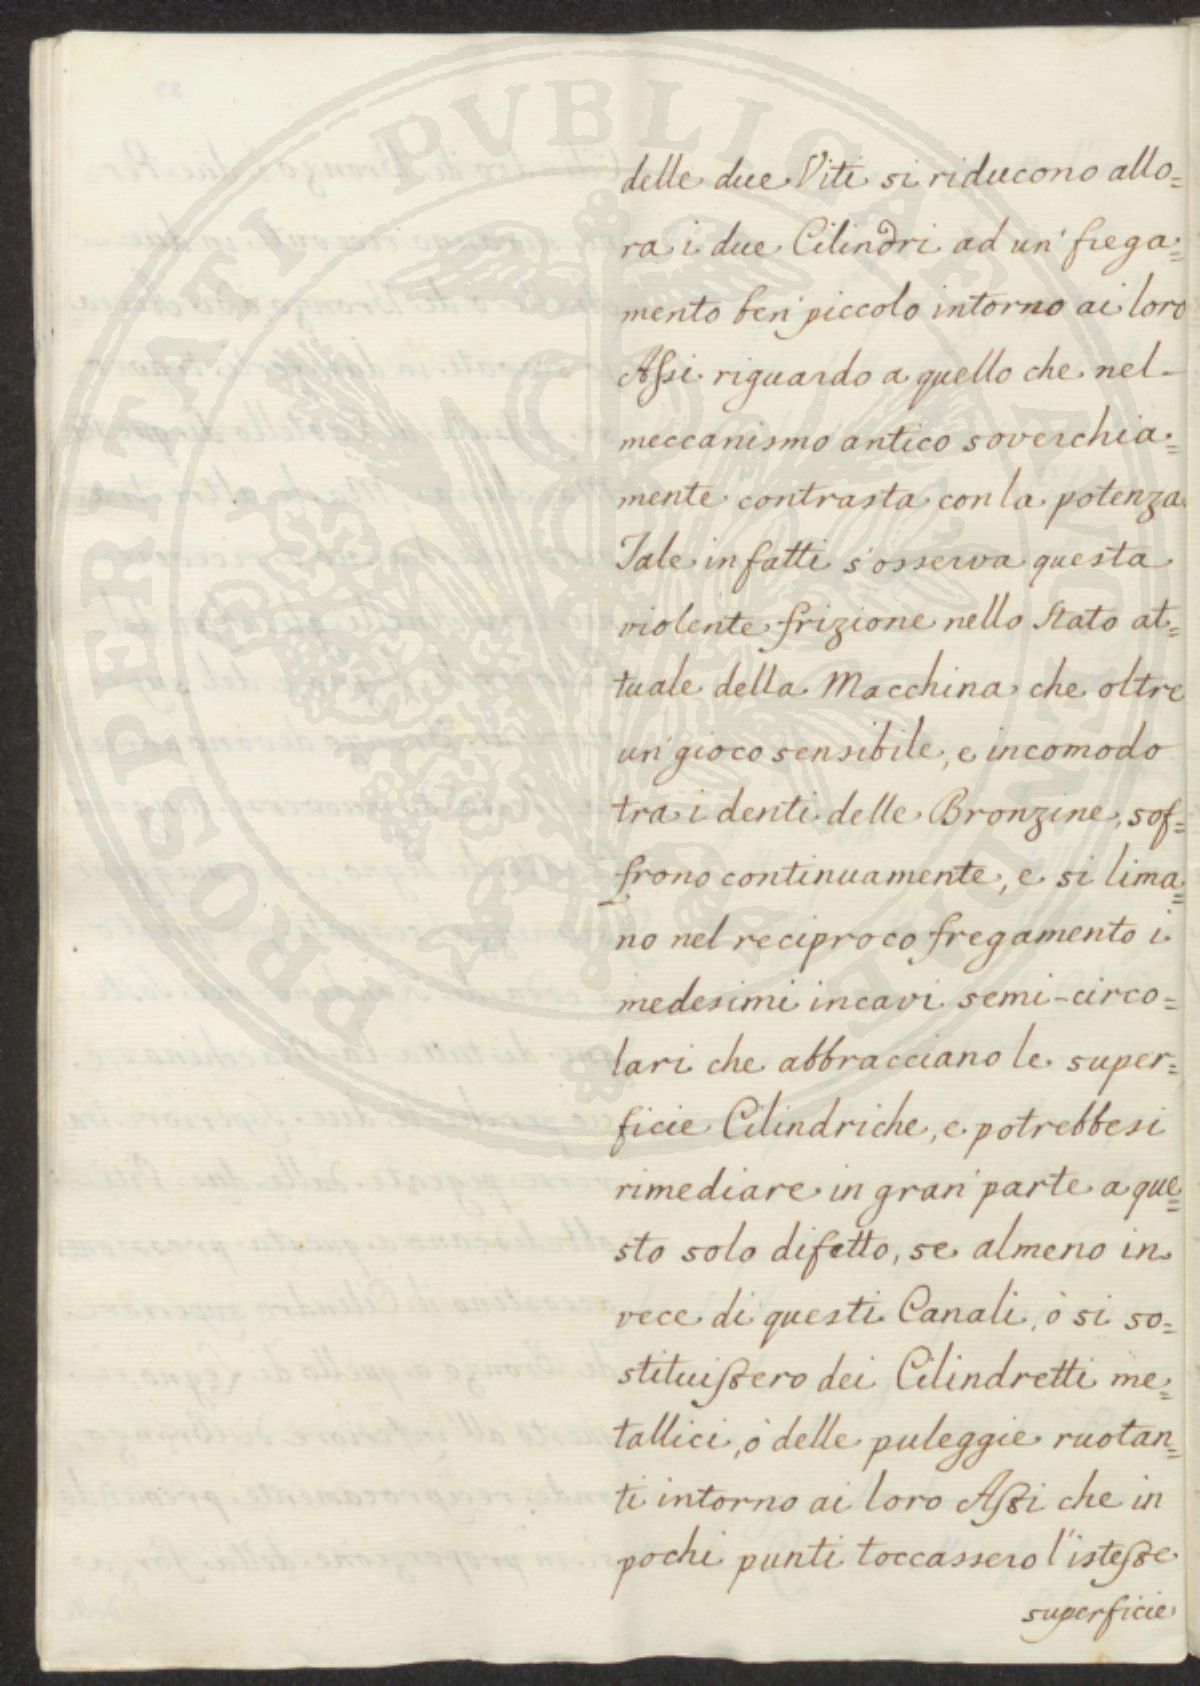 delle due Viti si riducono allo=
ra i due Cilindri ad un' frega=
mento ben' piccolo intorno ai loro
Assi riguardo a quello che nel
meccanismo antico soverchia=
mente contrasta con la potenza.
Tale infatti s'osserva questa
violente frizione nello Stato at=
tuale della Macchina che oltre
un' gioco sensibile, e incomodo
tra i denti delle Bronzine, sof=
frono continuamente, e si lima=
no nel reciproco fregamento i
medesimi incavi semi-circo=
lari che abbracciano le super=
ficie Cilindriche, e potrebbesi
rimediare in gran' parte a que=
sto solo difetto, se almeno in
vece di questi Canali, ò si so=
stituissero dei Cilindretti me=
tallici, ò delle puleggie ruotan=
ti intorno ai loro Assi che in
pochi punti toccassero l'istesse
superficie
PROSPERITATI PUBLICAE AUGENDAE